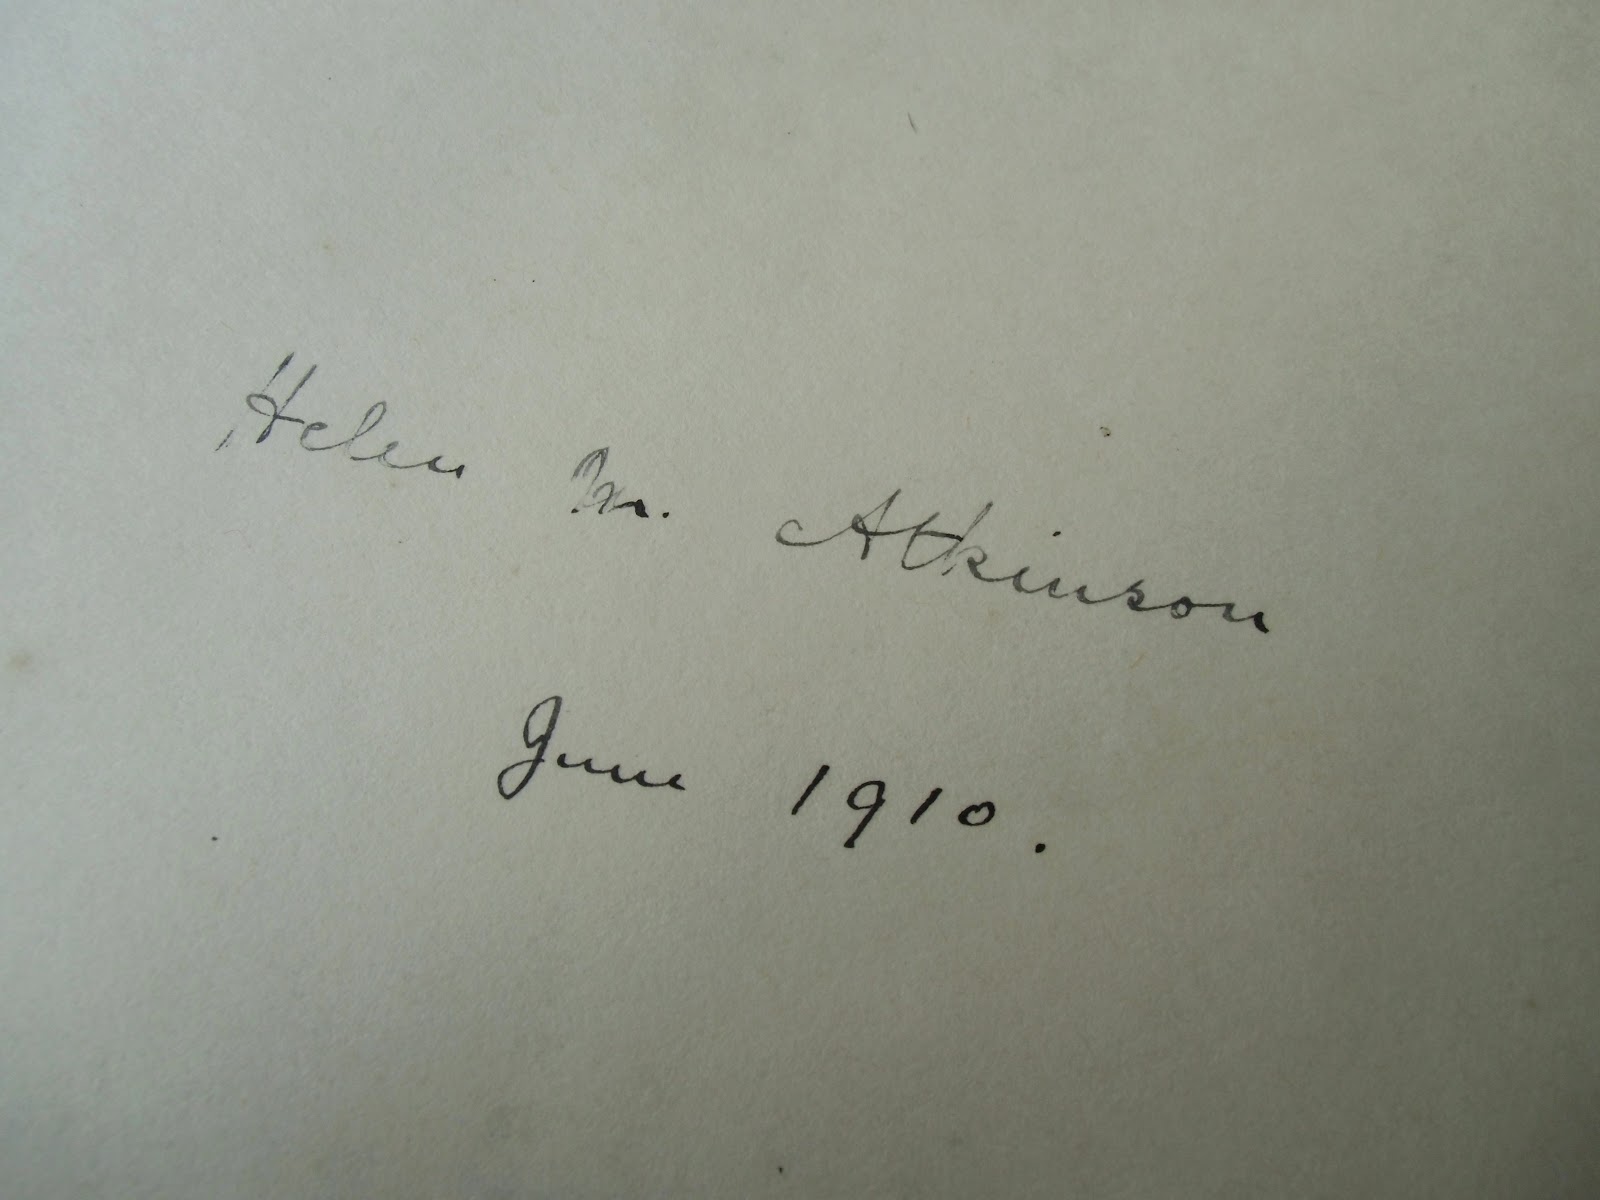 Helen M. Atkinson
June 1910.